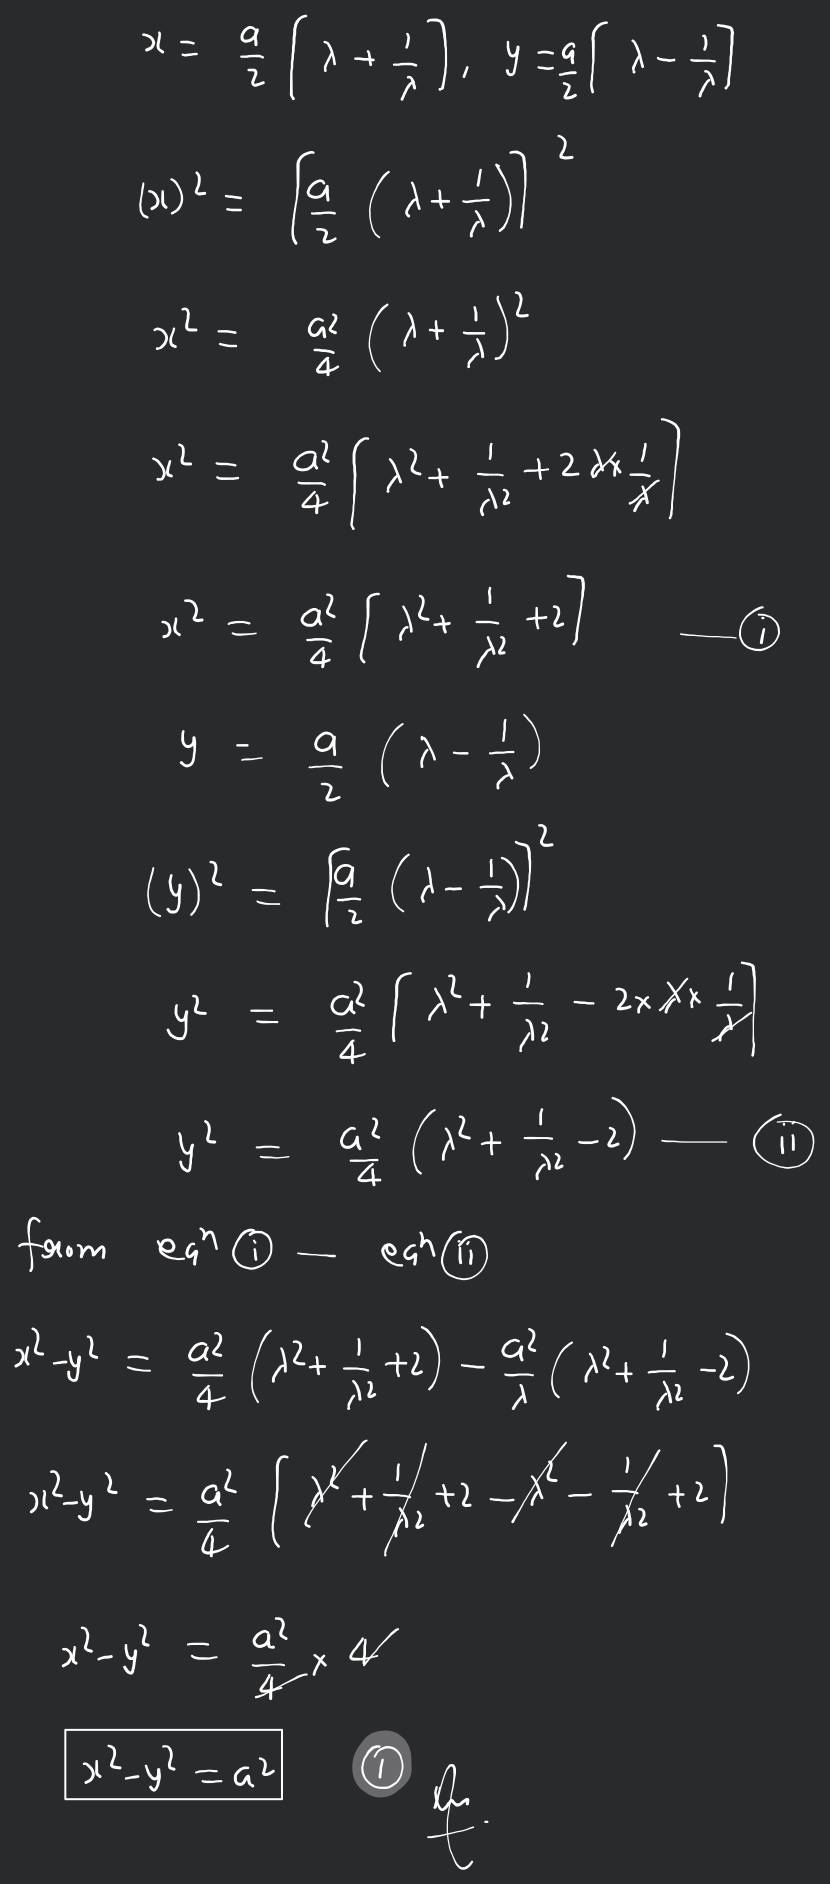 x = a/2 [λ + 1/λ], y = a/2 [λ - 1/λ]
(x)² = [a/2 (λ + 1/λ)]²
x² = a²/4 (λ + 1/λ)²
x² = a²/4 [λ² + 1/λ² + 2λ × 1/λ]
x² = a²/4 [λ² + 1/λ² + 2] — (i)
y = a/2 (λ - 1/λ)
(y)² = [a/2 (λ - 1/λ)]²
y² = a²/4 [λ² + 1/λ² - 2 × λ × 1/λ]
y² = a²/4 (λ² + 1/λ² - 2) — (ii)
from eqⁿ (i) — eqⁿ (ii)
x² - y² = a²/4 (λ² + 1/λ² + 2) - a²/λ (λ² + 1/λ² - 2)
x² - y² = a²/4 [λ² + 1/λ² + 2 - λ² - 1/λ² + 2]
x² - y² = a²/4 × 4
x² - y² = a² (i)